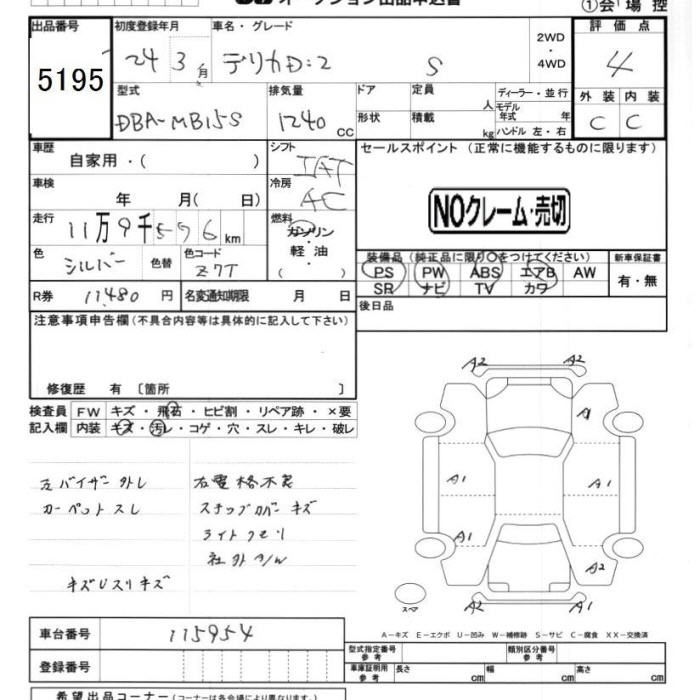 オークション出品申込書
①会 場 控
出品番号 初度登録年月 車名・グレード 2WD・4WD 評価点
5195 24 3月 デリカD:2 S 4
型式 排気量 ドア 定員 人 ディーラー・並行 外装 内装
DBA-MB15S 1240 cc 形状 積載 kg モデル年式 年 ハンドル 左・右 C C
車歴 自家用・( ) シフト IAT セールスポイント (正常に機能するものに限ります)
車検 年 月( 日) 冷房 AC
NOクレーム・売切
走行 11万9千576km 燃料 ガソリン・軽油・( )
色 シルバー 色替 色コード Z7T
装備品 (純正品に限り○をつけてください) 新車保証書
PS PW ABS エアB AW 有・無
SR ナビ TV カワ
R券 11480 円 名変通知期限 月 日 後日品
注意事項申告欄 (不具合内容等は具体的に記入して下さい)
修復歴 有 〔箇所 〕
検査員 FW キズ・飛石・ヒビ割・リペア跡・×要
記入欄 内装 キズ・汚レ・コゲ・穴・スレ・キレ・破レ
左バイザー外レ 右電格不良
カーペットスレ ステップカバーキズ
ライトクモリ
社外A/W
キズUスリキズ
A2 A2
A1
A1 A1
A1
A2 A2
A2
スペア
A-キズ E-エクボ U-凹み W-補修跡 S-サビ C-腐食 XX-交換済
車台番号 115954
型式指定番号 参考 類別区分番号 参考
登録番号 車庫証明用 参考 長さ cm 幅 cm 高さ cm
希望出品コーナー (コーナーは各会場により異なります。)